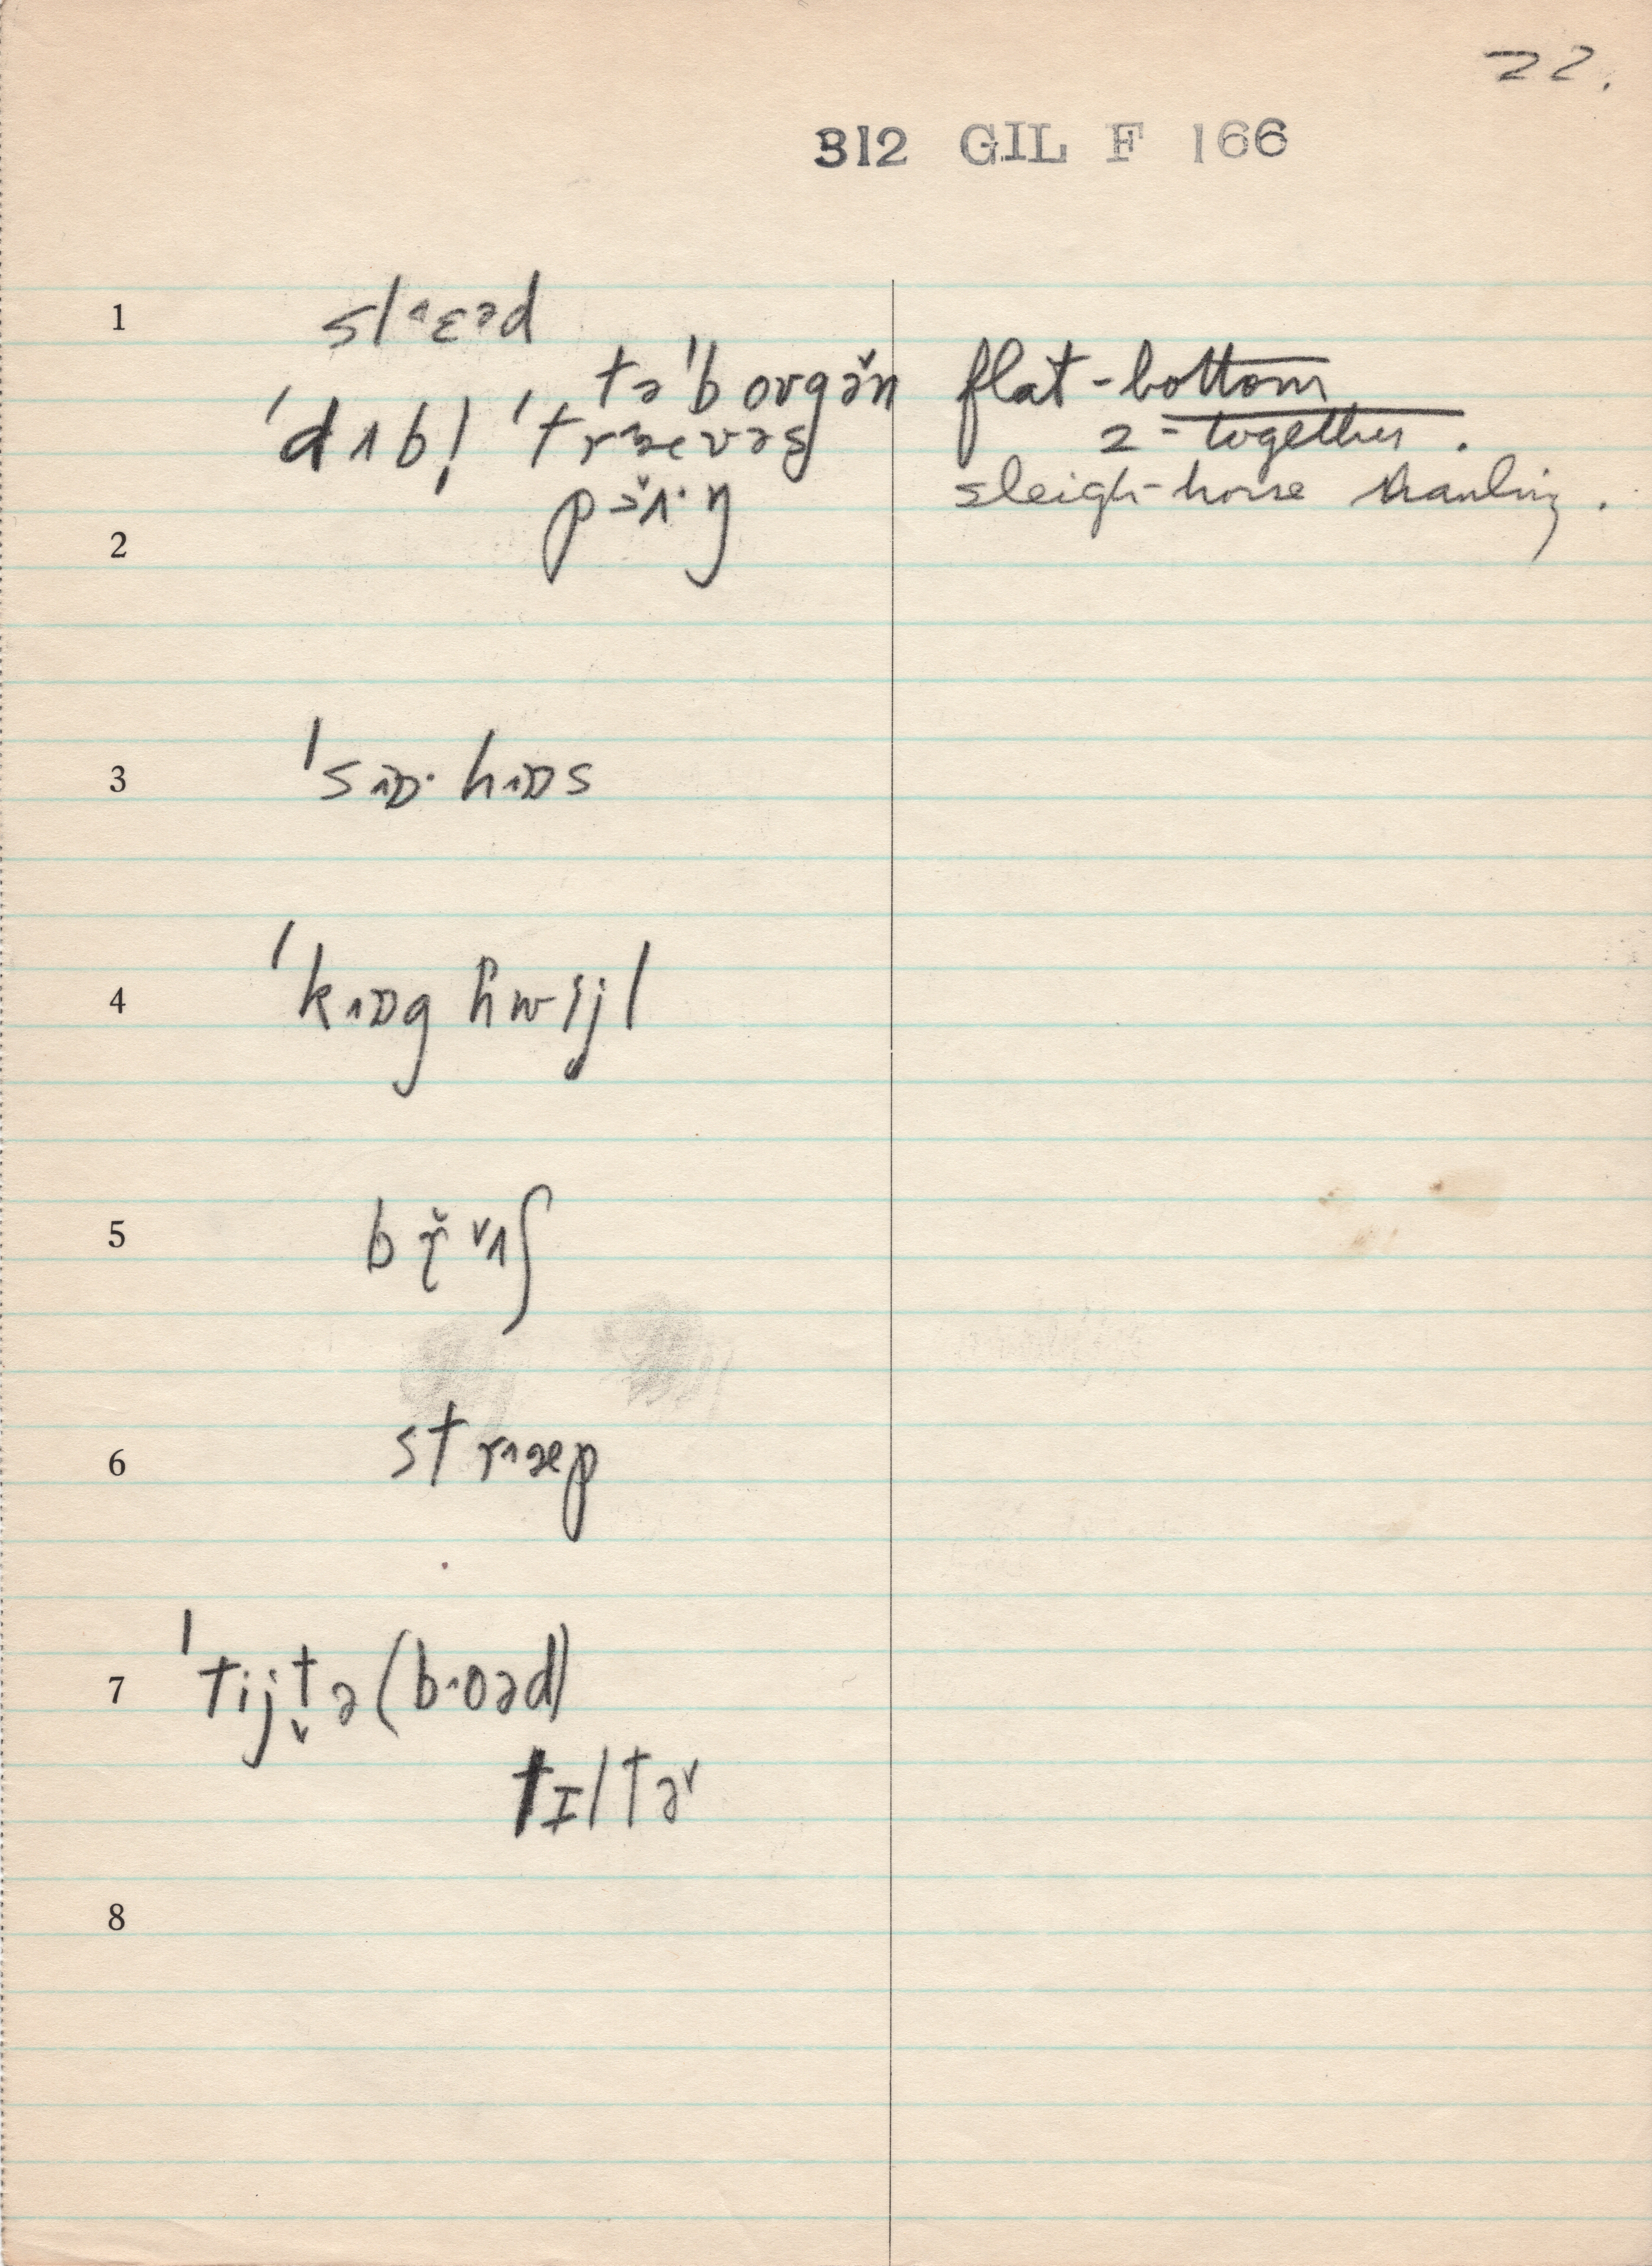 22.
312 GIL F 166
1 sl˄ɛəd
tə'borgə̌n flat-bottom
'dʌbḷ 'tr˄ævəs 2-together.
pə̌ʌ·ŋ sleigh-horse hauling.
2
3 's˄ɒ· h˄ɒs
4 'k˄ɒg hwijl
5 bř̩˅ʌʃ
6 str˄æp
7 'tijt̬ə (b˄oəd)
tɪltə˅
8